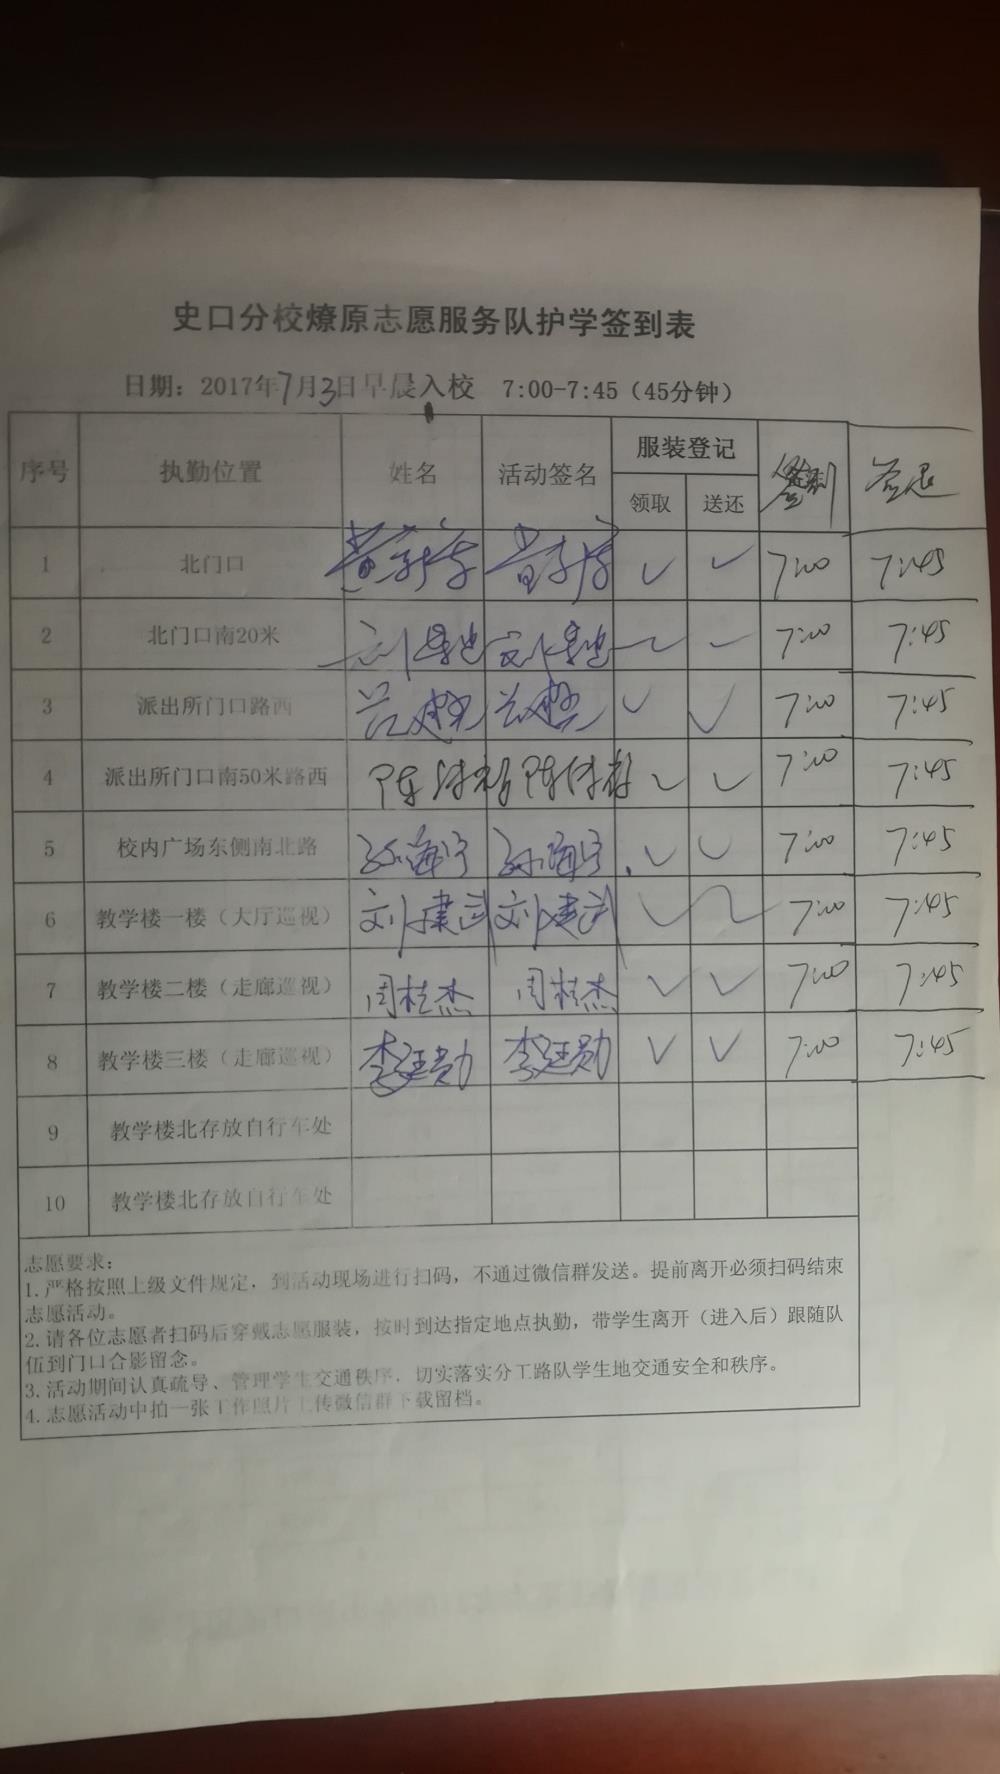 史口分校燎原志愿服务队护学签到表
日期：2017年7月3日早晨入校 7:00-7:45（45分钟）
序号 执勤位置 姓名 活动签名 服装登记 签到 签退
领取 送还
1 北门口 ✓ ✓ 7:00 7:45
2 北门口南20米 ✓ ✓ 7:00 7:45
3 派出所门口路西 ✓ ✓ 7:00 7:45
4 派出所门口南50米路西 ✓ ✓ 7:00 7:45
5 校内广场东侧南北路 孙海宁 孙海宁 ✓ ✓ 7:00 7:45
6 教学楼一楼（大厅巡视） 刘建武 刘建武 ✓ ✓ 7:00 7:45
7 教学楼二楼（走廊巡视） 周桂杰 周桂杰 ✓ ✓ 7:00 7:45
8 教学楼三楼（走廊巡视） 李廷勋 李廷勋 ✓ ✓ 7:00 7:45
9 教学楼北存放自行车处
10 教学楼北存放自行车处
志愿要求：
1.严格按照上级文件规定，到活动现场进行扫码，不通过微信群发送。提前离开必须扫码结束
志愿活动。
2.请各位志愿者扫码后穿戴志愿服装，按时到达指定地点执勤，带学生离开（进入后）跟随队
伍到门口合影留念。
3.活动期间认真疏导、管理学生交通秩序，切实落实分工路队学生地交通安全和秩序。
4.志愿活动中拍一张工作照片上传微信群下载留档。